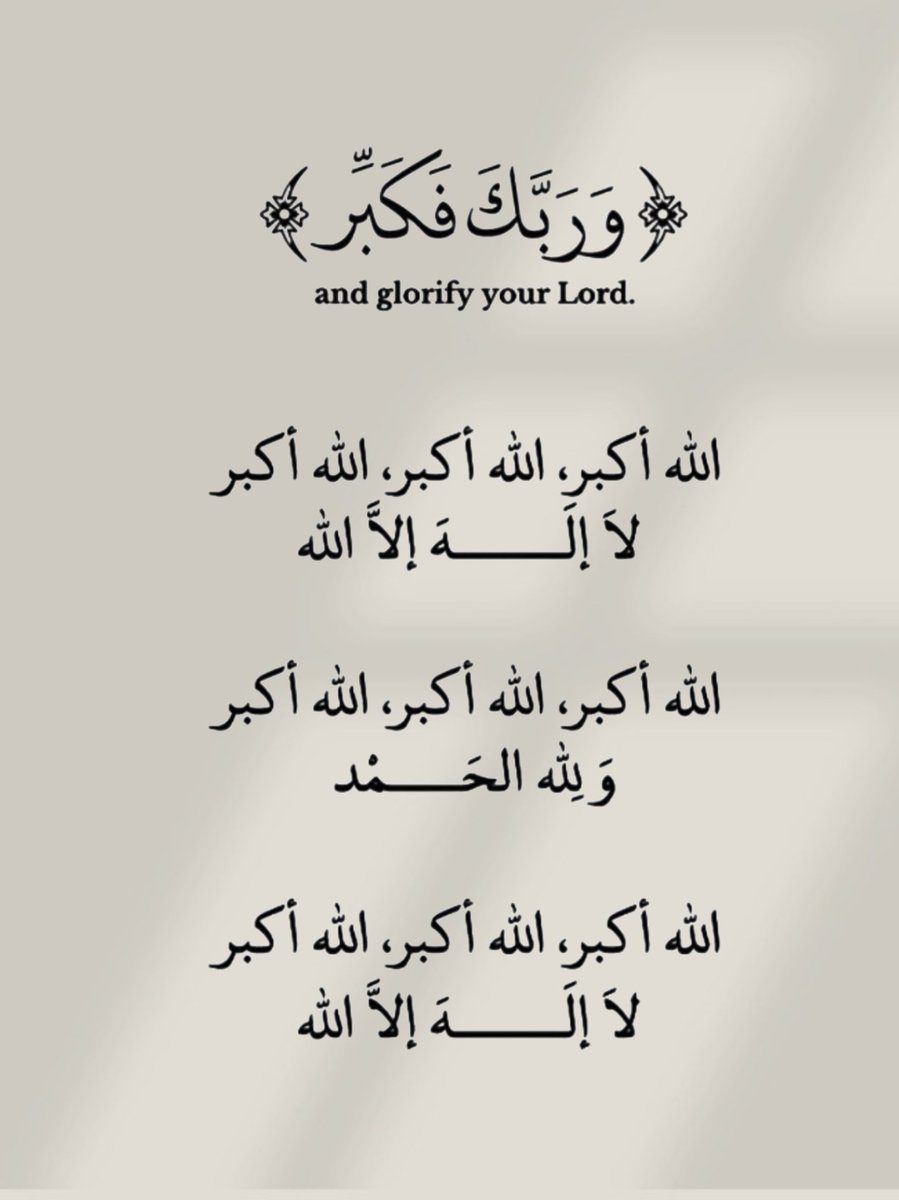 ﴿وَرَبَّكَ فَكَبِّر﴾
and glorify your Lord.
الله أكبر، الله أكبر، الله أكبر
لاَ إلَـــــــهَ إلاَّ الله
الله أكبر، الله أكبر، الله أكبر
وَلِلّه الحَـــــمْد
الله أكبر، الله أكبر، الله أكبر
لاَ إلَـــــــهَ إلاَّ الله